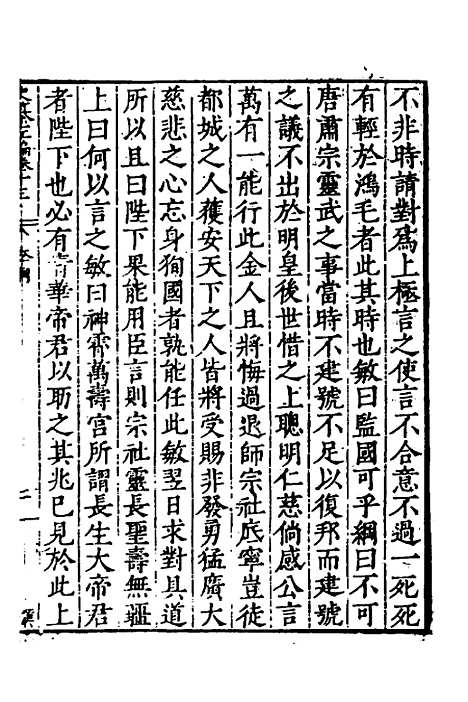 不非時請對爲上極言之使言不合意不過一死死
有輕於鴻毛者此其時也敏曰監國可乎綱曰不可
唐肅宗靈武之事當時不建號不足以復邦而建號
之議不出於明皇後世惜之上聰明仁慈倘感公言
萬有一能行此金人且將悔過退師宗社底寧豈徒
都城之人獲安天下之人皆將受賜非發勇猛廣大
慈悲之心忘身狥國者孰能任此敏翌日求對具道
所以且曰陛下果能用臣言則宗社靈長聖壽無疆
上曰何以言之敏曰神霄萬壽宮所謂長生大帝君
者陛下也必有青華帝君以助之其兆已見於此上